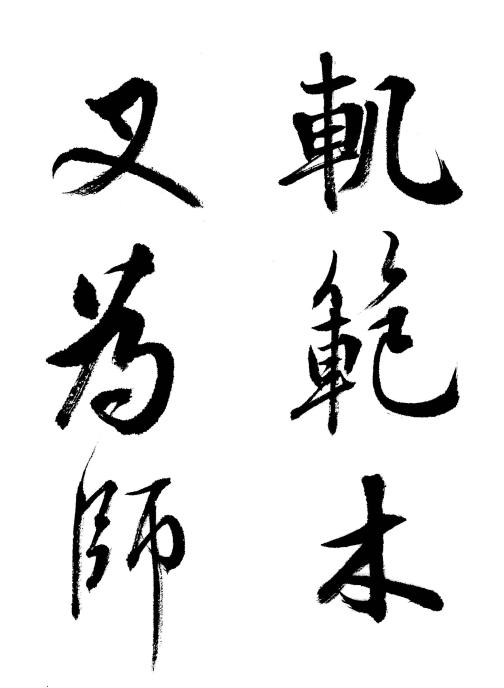 軌範木
又為師